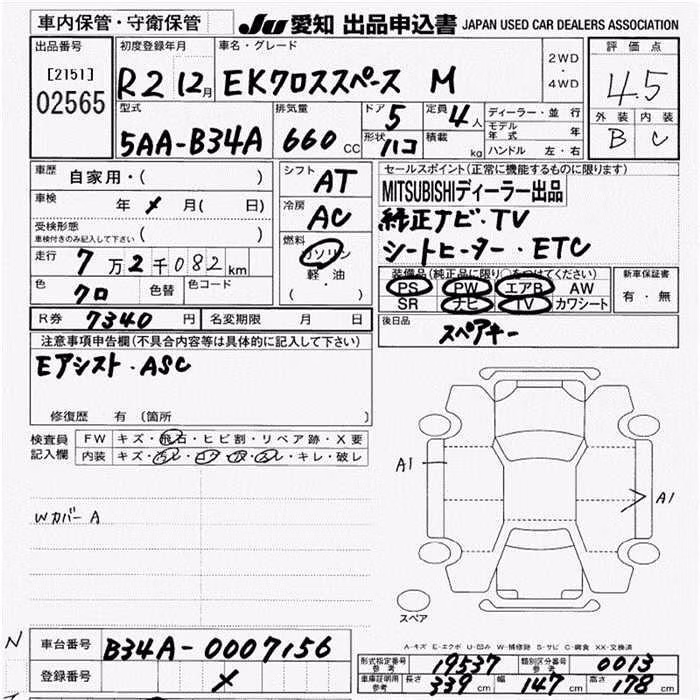 車内保管・守衛保管
JU 愛知 出品申込書 JAPAN USED CAR DEALERS ASSOCIATION
出品番号
[2151]
02565
初度登録年月
R2 12月
車名・グレード
EKクロススペース M
2WD
・
4WD
評価点
4.5
外装 内装
B C
型式
5AA-B34A
排気量
660 CC
ドア 5
形状 ハコ
定員 4人
積載 kg
ディーラー・並行
モデル年式 年
ハンドル 左・右
車歴 自家用・( )
車検 年 メ 月( 日)
受検形態
車検付きのみ記入して下さい ( )
走行 7万2千082km
色 クロ 色替 色コード
シフト AT
冷房 AC
燃料 ガソリン
軽・油
( ・ )
セールスポイント(正常に機能するものに限ります)
MITSUBISHIディーラー出品
純正ナビ・TV
シートヒーター・ETC
装備品(純正品に限り○をつけてください)
PS PW エアB AW
SR ナビ TV カワシート
新車保証書
有・無
R券 7340円 名変期限 月 日
後日品 スペアキー
注意事項申告欄(不具合内容等は具体的に記入して下さい)
Eアシスト・ASC
修復歴 有(箇所 )
検査員記入欄
FW キズ・飛石・ヒビ割・リペア跡・X要
内装 キズ・汚レ・コゲ・穴・スレ・キレ・破レ
Wカバー A
A1
A1
スペア
A-キズ E-エクボ U-凹み W-補修跡 S-サビ C-腐食 XX-交換済
N
車台番号 B34A-0007156
登録番号 メ
形式指定番号 参考 19537 類別区分番号 参考 0013
車庫証明用 参考 長さ 339cm 幅 147cm 高さ 178cm